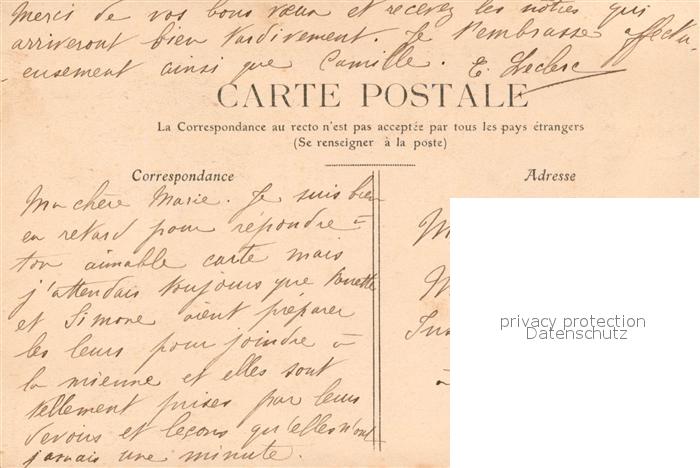 Merci de vos bons vœux et recevez les nôtres qui
arriveront bien tardivement. Je t'embrasse affectu-
-eusement ainsi que Camille. E. Leclerc
CARTE POSTALE
La Correspondance au recto n'est pas acceptée par tous les pays étrangers
(Se renseigner à la poste)
Correspondance
Ma chère Marie. Je suis bien
en retard pour répondre à
ton aimable carte mais
j'attendais toujours que
et Simone aient préparer
les leurs pour joindre à
la mienne et elles sont
tellement prises par leurs
devoirs et leçons qu'elles n'ont
jamais une minute.
Adresse
M
M
à
privacy protection
Datenschutz